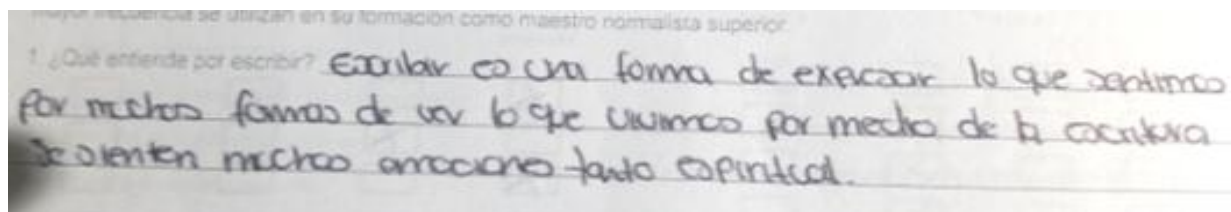 mayor frecuencia se utilizan en su formación como maestro normalista superior.
1. ¿Qué entiende por escribir? Escribir es una forma de expresar lo que sentimos
por muchos formas de ver lo que vivimos por medio de la escritura
se sienten muchos emociones tanto espiritual.